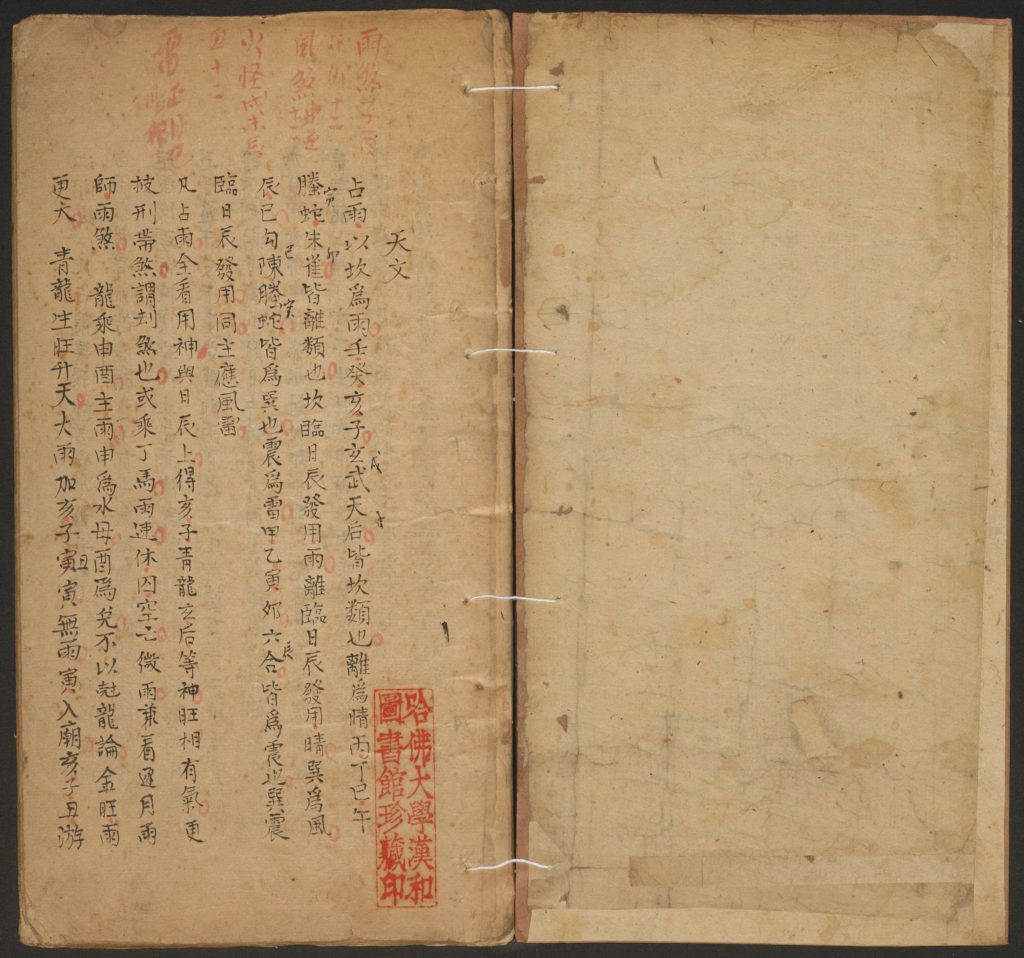 天文
占雨以坎爲雨壬癸亥子玄武天后皆坎類也離爲晴丙丁巳午
螣蛇朱雀皆離類也坎臨日辰發用雨離臨日辰發用晴巽爲風
辰巳勾陳螣蛇皆爲巽也震爲雷甲乙寅卯六合皆爲震也巽震
臨日辰發用同主應風雷
凡占雨全看用神與日辰上得亥子青龍玄后等神旺相有氣更
披刑帶煞謂刦煞也或乘丁馬雨速休囚空亡微雨兼看逐月雨
師雨煞 龍乘申酉主雨申爲水母酉爲兌不以尅龍論金旺雨
更大 青龍生旺升天大雨加亥子寅寅無雨寅入廟亥子丑游
寅
卯
巳
寅
戌
辰
丑
雨煞子
十二
風煞申逆
十二
火怪戌未辰
丑十二
哈佛大學漢和
圖書館珍藏印